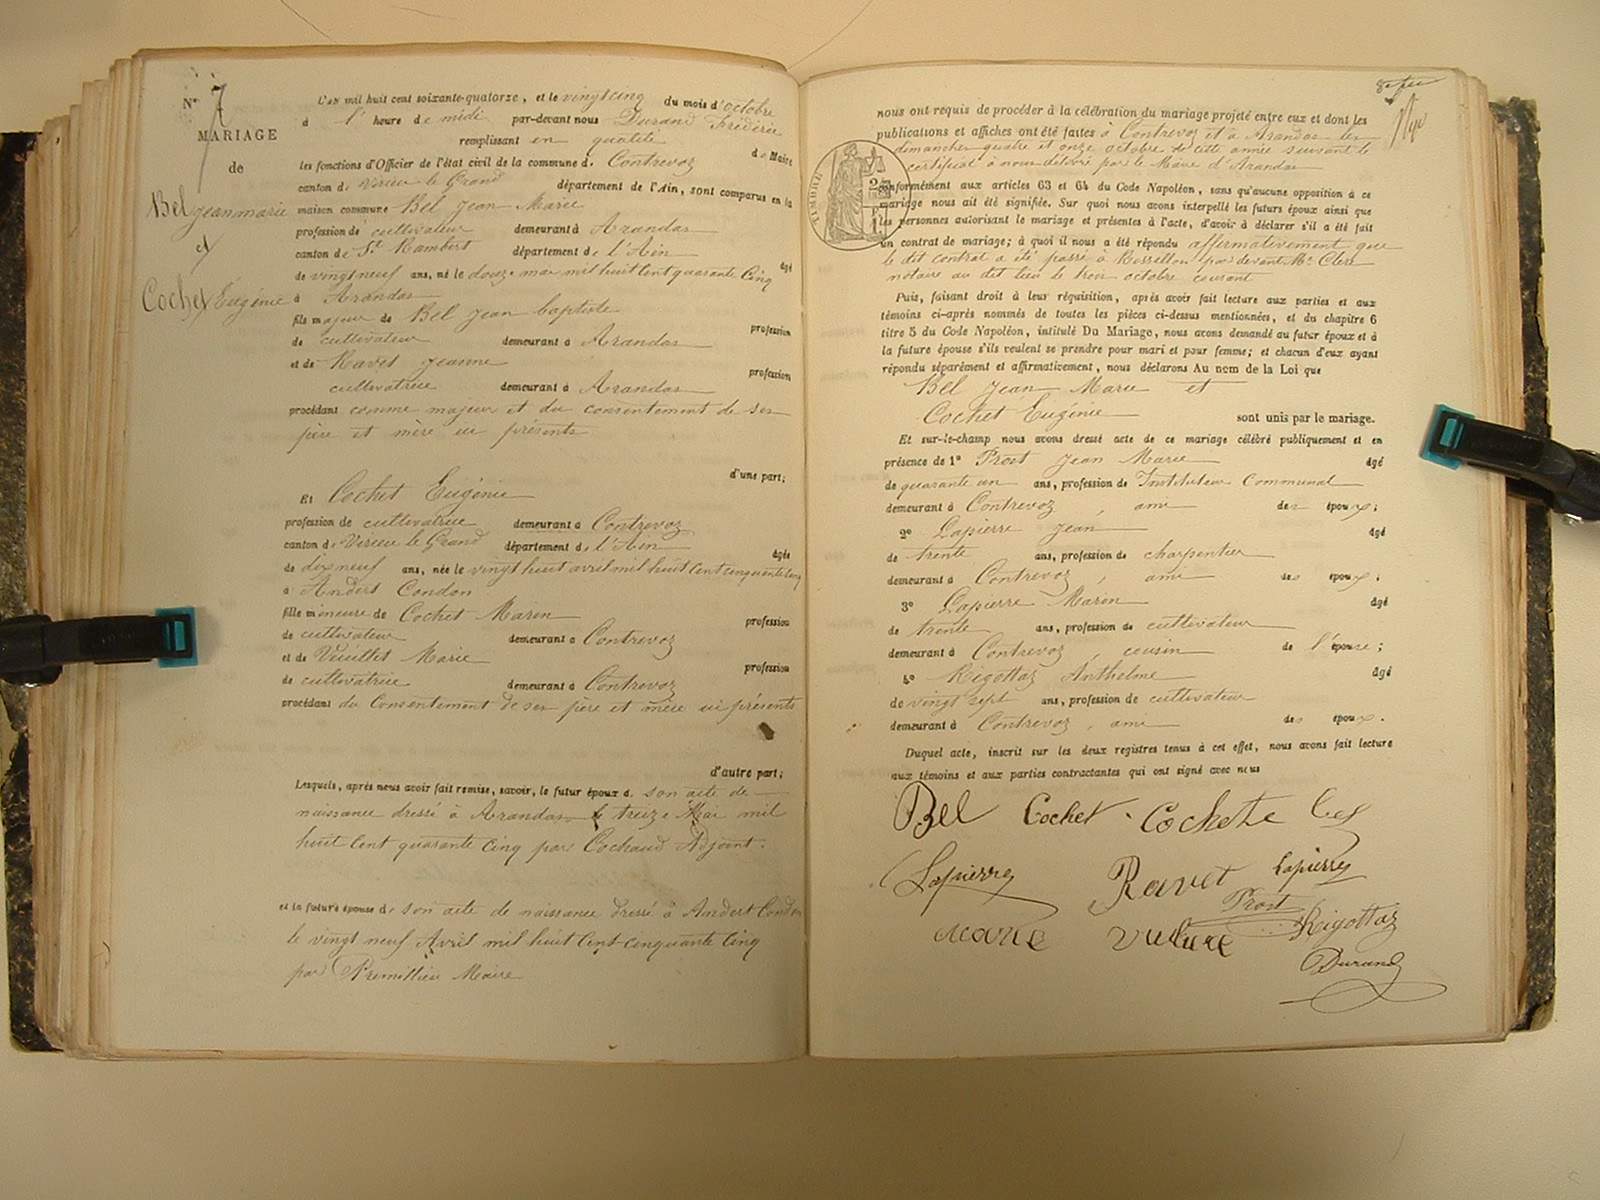 N° 7
MARIAGE
de
Bel jean marie
et
Cochet Eugénie
L'an mil huit cent soixante-quatorze, et le vingt cinq du mois d'octobre
à l' heure de midi par-devant nous Durand Frédéric
remplissant en qualité de Maire
les fonctions d'Officier de l'état civil de la commune d. Contrevoz
canton de Virieu le Grand département de l'Ain, sont comparus en la
maison commune Bel Jean Marie
profession de cultivateur demeurant à Arandas
canton de St Rambert département de l'Ain âgé
de vingt neuf ans, né le douze mai mil huit cent quarante cinq
à Arandas
fils majeur de Bel Jean baptiste profession
de cultivateur demeurant à Arandas
et de Ravet Jeanne profession
cultivatrice demeurant à Arandas
procédant comme majeur et du consentement de ses
père et mère ici présents
d'une part;
Et Cochet Eugénie
profession de cultivatrice demeurant à Contrevoz
canton de Virieu le Grand département de l'Ain âgée
de dix neuf ans, née le vingt huit avril mil huit cent cinquante cinq
à Andert Condon
fille mineure de Cochet Marin profession
de cultivateur demeurant à Contrevoz
et de Vuillet Marie profession
de cultivatrice demeurant à Contrevoz
procédant du Consentement de ses père et mère ici présents
d'autre part;
Lesquels, après nous avoir fait remise, savoir, le futur époux d. son acte de
naissance dressé à Arandas le treize Mai mil
huit cent quarante cinq par Cochaud Adjoint.
et la future épouse de son acte de naissance dressé à Andert Condon
le vingt neuf Avril mil huit cent cinquante cinq
par Premillieu Maire
nous ont requis de procéder à la célébration du mariage projeté entre eux et dont les
publications et affiches ont été faites à Contrevoz et à Arandas les
dimanches quatre et onze octobre de cette année suivant le
certificat à nous délivré par le Maire d'Arandas
TIMBRE
conformément aux articles 63 et 64 du Code Napoléon, sans qu'aucune opposition à ce
mariage nous ait été signifiée. Sur quoi nous avons interpellé les futurs époux ainsi que
les personnes autorisant le mariage et présentes à l'acte, d'avoir à déclarer s'il a été fait
un contrat de mariage; à quoi il nous a été répondu affirmativement que
le dit contrat a été passé à Rossillon par devant Me Clerc
notaire au dit lieu le trois octobre courant
Puis, faisant droit à leur réquisition, après avoir fait lecture aux parties et aux
témoins ci-après nommés de toutes les pièces ci-dessus mentionnées, et du chapitre 6
titre 5 du Code Napoléon, intitulé Du Mariage, nous avons demandé au futur époux et à
la future épouse s'ils veulent se prendre pour mari et pour femme; et chacun d'eux ayant
répondu séparément et affirmativement, nous déclarons Au nom de la Loi que
Bel Jean Marie et
Cochet Eugénie sont unis par le mariage.
Et sur-le-champ nous avons dressé acte de ce mariage célébré publiquement et en
présence de 1° Prost Jean Marie âgé
de quarante un ans, profession de Instituteur Communal
demeurant à Contrevoz, ami des époux;
2° Lapierre Jean âgé
de trente ans, profession de charpentier
demeurant à Contrevoz, ami des époux;
3° Lapierre Marin âgé
de trente ans, profession de cultivateur
demeurant à Contrevoz, cousin de l'épouse;
4° Rigottaz Anthelme âgé
de vingt sept ans, profession de cultivateur
demeurant à Contrevoz, ami des époux.
Duquel acte, inscrit sur les deux registres tenus à cet effet, nous avons fait lecture
aux témoins et aux parties contractantes qui ont signé avec nous
Bel Cochet Cochet
Lapierre Ravet Lapierre
Prost
Marie Vuillet Rigottaz
Durand